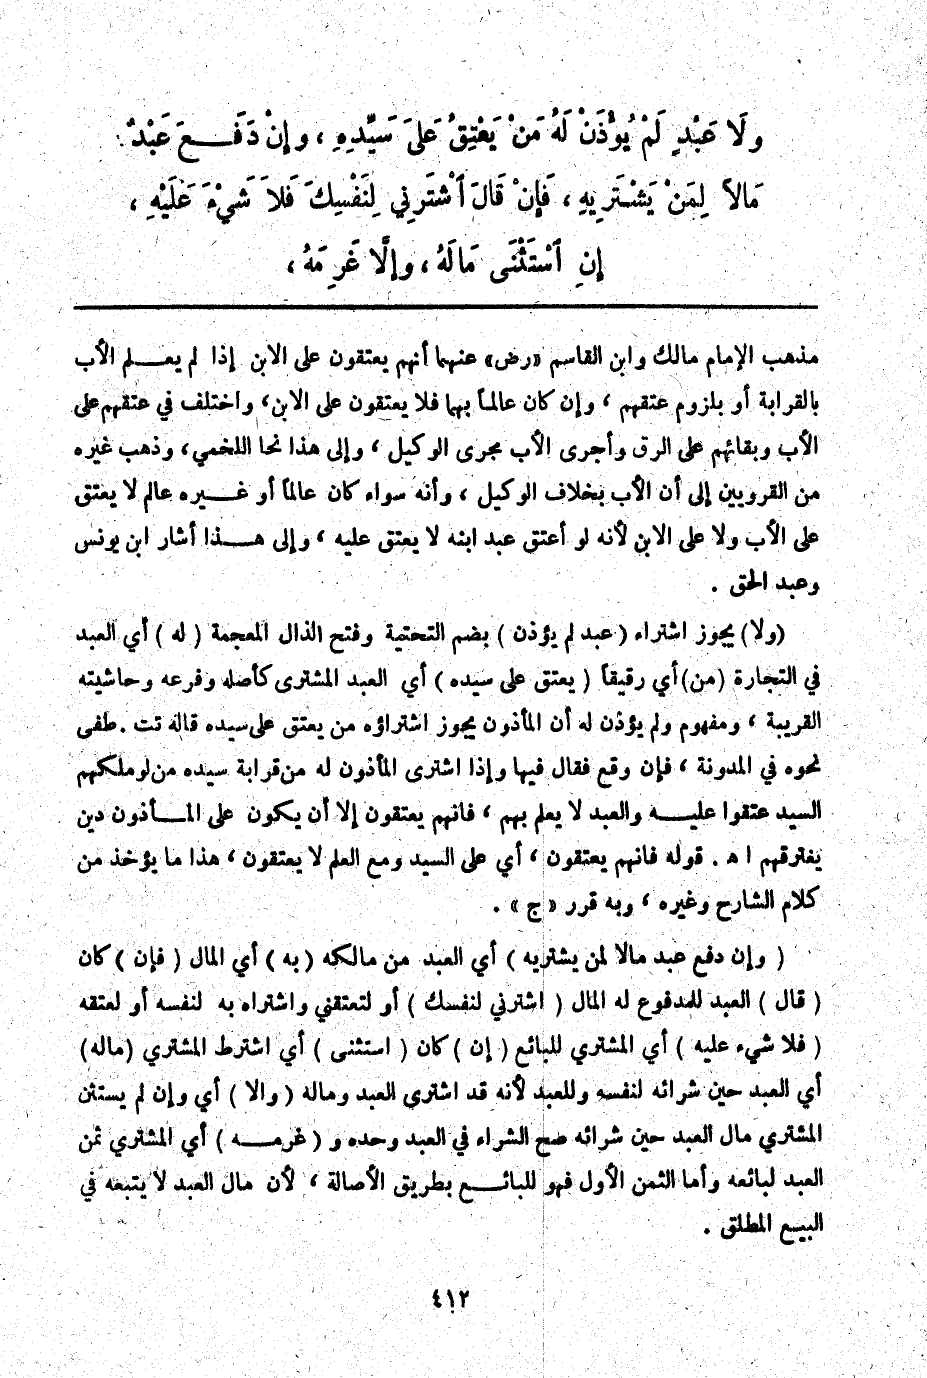 ولَا عَبْدٍ لَمْ يُوْذَنْ لَهُ مَنْ يَعْتِقُ عَلَى سَيِّدِهِ ، وإِنْ دَفَـــعَ عَبْدٌ
مَالاً لِمَنْ يَشْتَرِيهِ ، فَإِنْ قَالَ أَشْتَرِنِي لِنَفْسِكَ فَلاَ شَيْءَ عَلَيْهِ ،
إِنِ اسْتَثْنَى مَالَهُ ، وإِلَّا غَرِمَهُ ،
مذهب الإمام مالك وابن القاسم «رض» عنهما أنهم يعتقون على الابن إذا لم يعـــلم الأب
بالقرابة أو بلزوم عتقهم ، وإن كان عالماً بهما فلا يعتقون على الابن، واختلف في عتقهم على
الأب وبقائهم على الرق وأجرى الأب مجرى الوكيل ، وإلى هذا نحا اللخمي، وذهب غيره
من القرويين إلى أن الأب بخلاف الوكيل ، وأنه سواء كان عالماً أو غـــيره عالم لا يعتق
على الأب ولا على الابن لأنه لو أعتق عبد ابنه لا يعتق عليه ، وإلى هـــذا أشار ابن يونس
وعبد الحق .
(ولا) يجوز اشتراء ( عبد لم يؤذن ) بضم التحتية وفتح الذال المعجمة ( له ) أي العبد
في التجارة (من) أي رقيقاً ( يعتق على سيده ) أي العبد المشترى كأصله وفرعه وحاشيته
القريبة ، ومفهوم ولم يؤذن له أن المأذون يجوز اشتراؤه من يعتق على سيده قاله تت . طفى
نحوه في المدونة ، فإن وقع فقال فيها وإذا اشترى المأذون له من قرابة سيده من لو ملكهم
السيد عتقوا عليـــه والعبد لا يعلم بهم ، فانهم يعتقون إلا أن يكون على المـــأذون دين
يغترقهم ا ه . قوله فانهم يعتقون ، أي على السيد ومع العلم لا يعتقون ، هذا ما يؤخذ من
كلام الشارح وغيره ، وبه قرر « ج » .
( وإن دفع عبد مالا لمن يشتريه ) أي العبد من مالكه ( به ) أي المال ( فإن ) كان
( قال ) العبد للمدفوع له المال ( اشترني لنفسك ) أو لتعتقني واشتراه به لنفسه أو لعتقه
( فلا شيء عليه ) أي المشتري للبائع ( إن ) كان ( استثنى ) أي اشترط المشتري (ماله)
أي العبد حين شرائه لنفسه وللعبد لأنه قد اشترى العبد وماله ( والا ) أي وإن لم يستثن
المشتري مال العبد حين شرائه صح الشراء في العبد وحده و ( غرمـــه ) أي المشتري ثمن
العبد لبائعه وأما الثمن الأول فهو للبائـــع بطريق الأصالة ، لأن مال العبد لا يتبعه في
البيع المطلق .
٤١٢